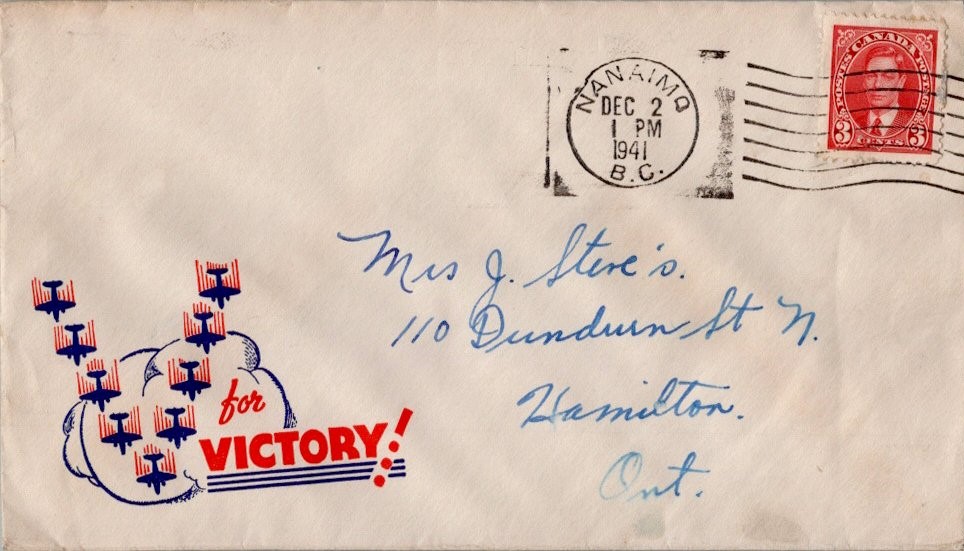 NANAIMO
DEC 2
1 PM
1941
B.C.
POSTES CANADA POSTAGE
3 CENTS 3
Mrs J. Steve's.
110 Dundurn St N.
Hamilton.
Ont.
for
VICTORY!